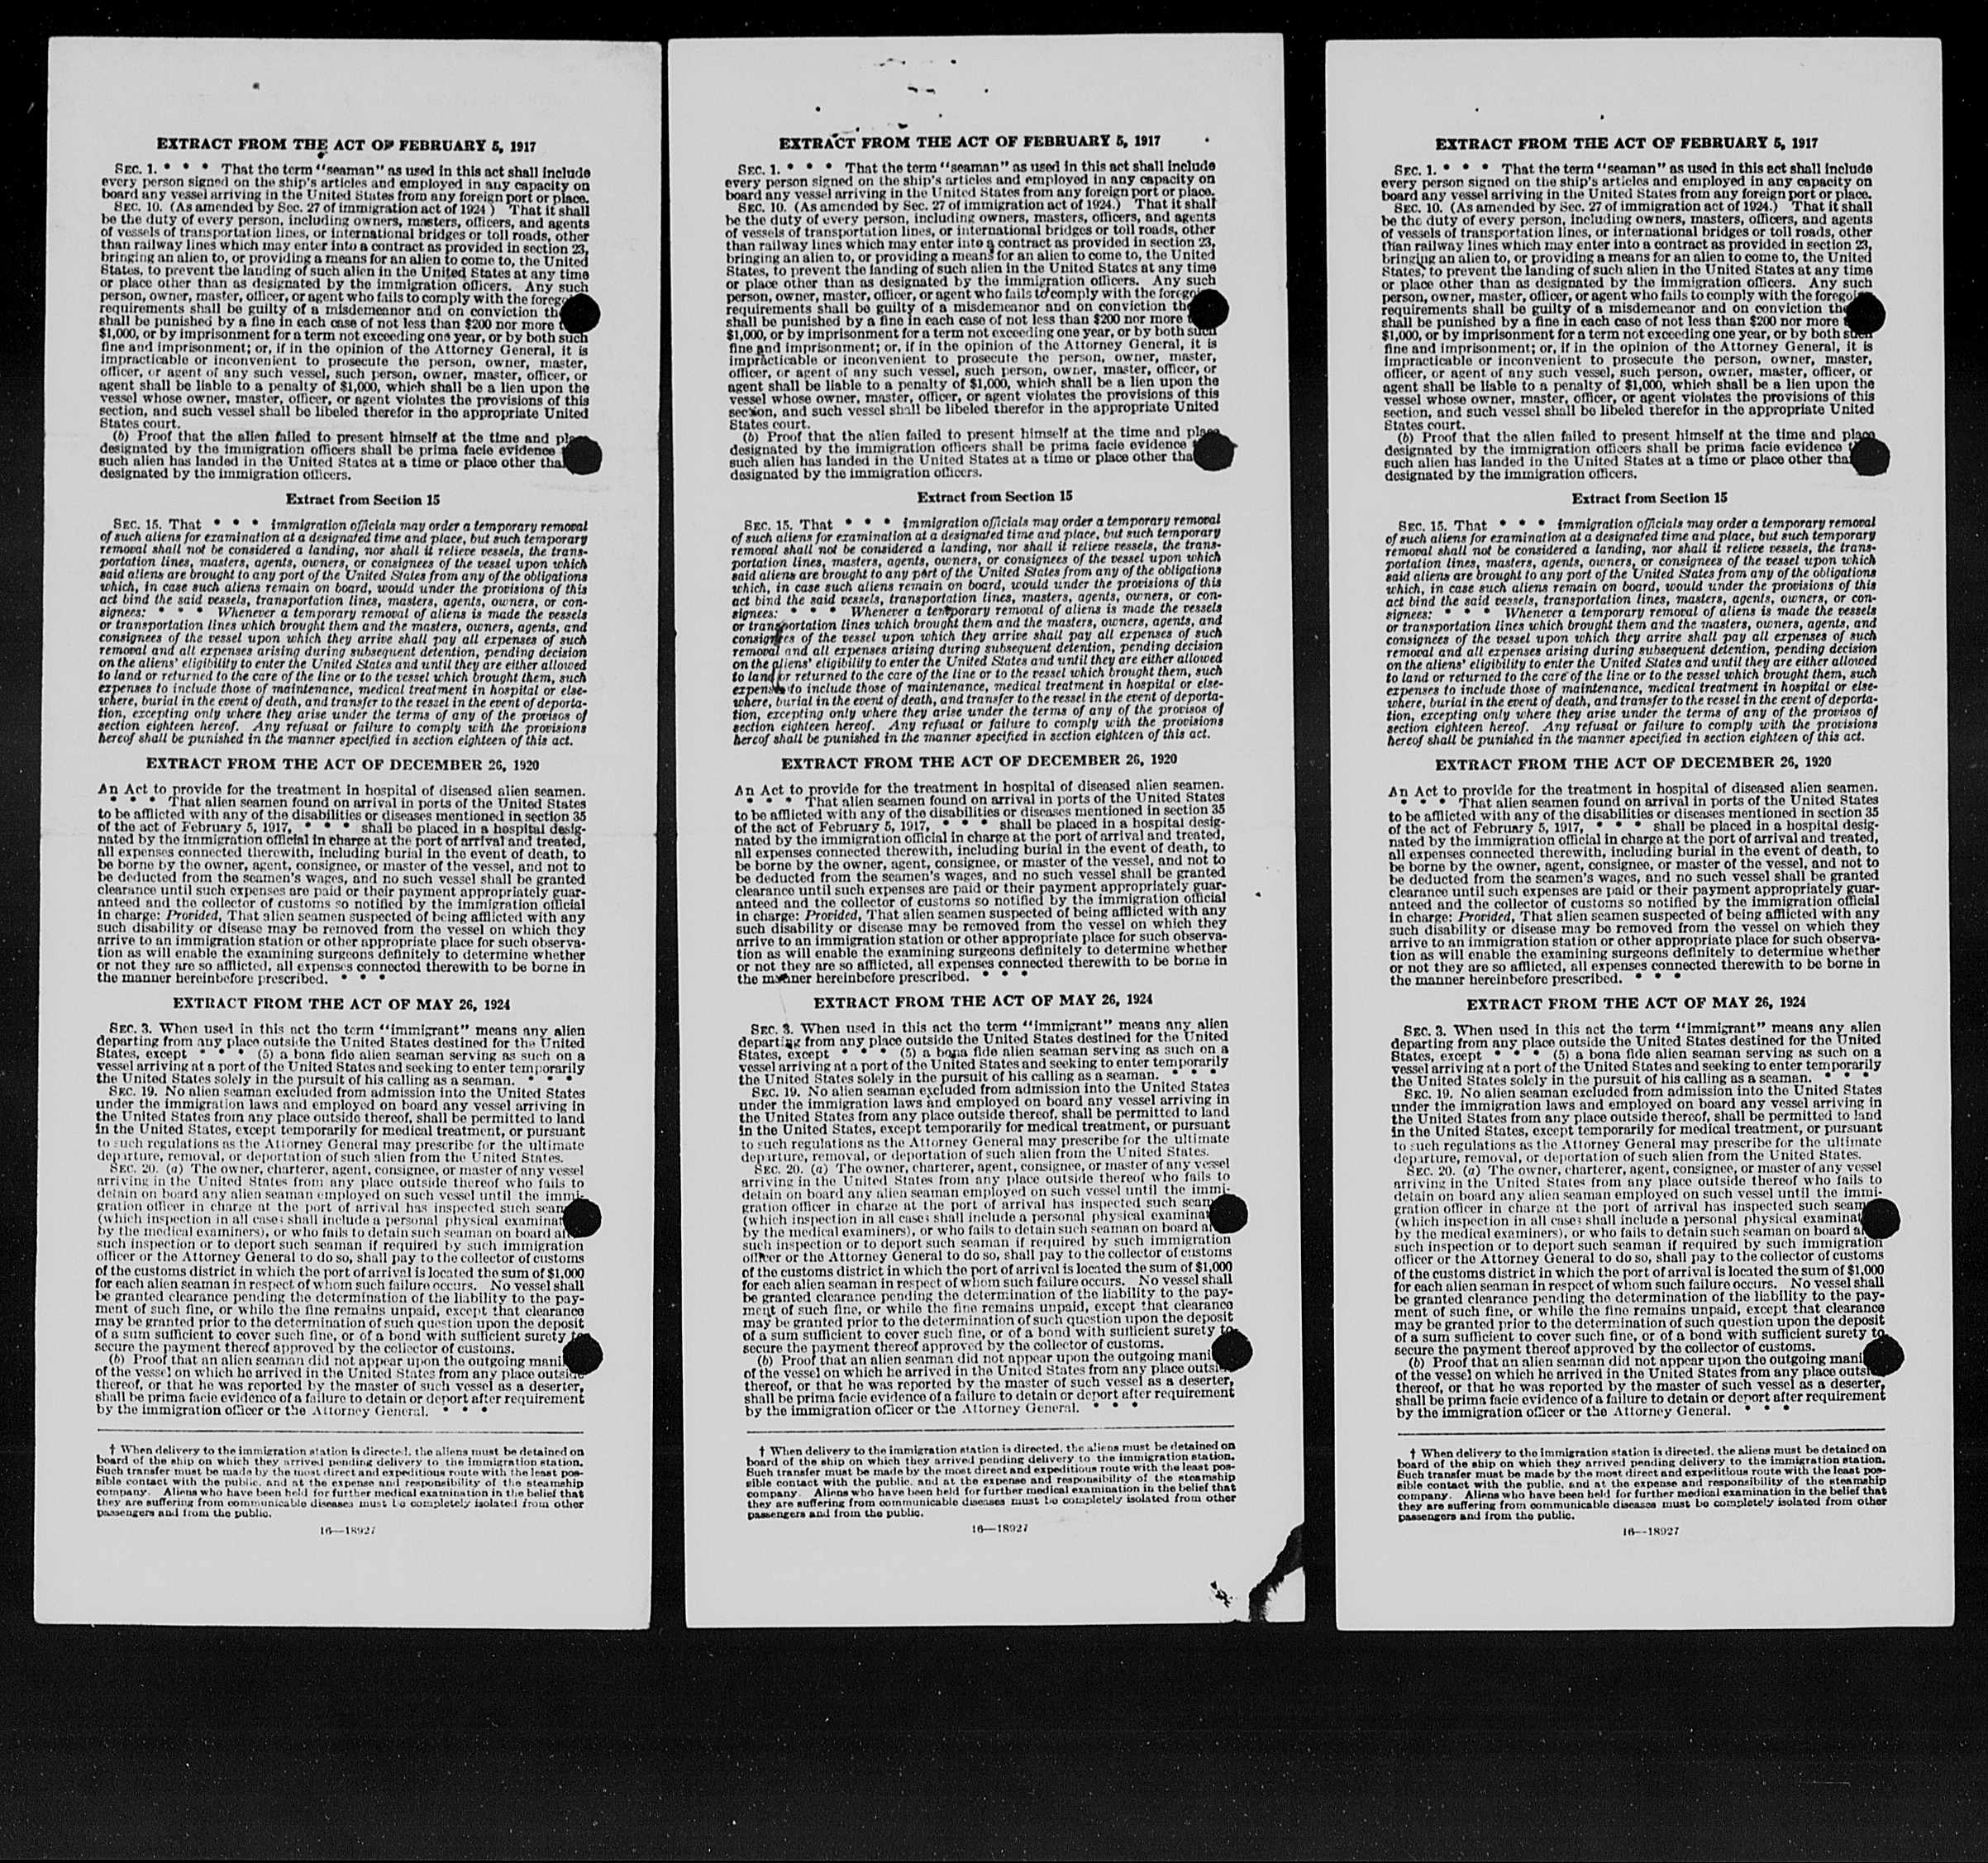 EXTRACT FROM THE ACT OF FEBRUARY 5, 1917
SEC. 1. * * * That the term "seaman" as used in this act shall include
every person signed on the ship's articles and employed in any capacity on
board any vessel arriving in the United States from any foreign port or place.
SEC. 10. (As amended by Sec. 27 of immigration act of 1924) That it shall
be the duty of every person, including owners, masters, officers, and agents
of vessels of transportation lines, or international bridges or toll roads, other
than railway lines which may enter into a contract as provided in section 23,
bringing an alien to, or providing a means for an alien to come to, the United
States, to prevent the landing of such alien in the United States at any time
or place other than as designated by the immigration officers. Any such
person, owner, master, officer, or agent who fails to comply with the forego
requirements shall be guilty of a misdemeanor and on conviction the
shall be punished by a fine in each case of not less than $200 nor more t
$1,000, or by imprisonment for a term not exceeding one year, or by both such
fine and imprisonment; or, if in the opinion of the Attorney General, it is
impracticable or inconvenient to prosecute the person, owner, master,
officer, or agent of any such vessel, such person, owner, master, officer, or
agent shall be liable to a penalty of $1,000, which shall be a lien upon the
vessel whose owner, master, officer, or agent violates the provisions of this
section, and such vessel shall be libeled therefor in the appropriate United
States court.
(b) Proof that the alien failed to present himself at the time and place
designated by the immigration officers shall be prima facie evidence
such alien has landed in the United States at a time or place other tha
designated by the immigration officers.
Extract from Section 15
SEC. 15. That * * * immigration officials may order a temporary removal
of such aliens for examination at a designated time and place, but such temporary
removal shall not be considered a landing, nor shall it relieve vessels, the trans-
portation lines, masters, agents, owners, or consignees of the vessel upon which
said aliens are brought to any port of the United States from any of the obligations
which, in case such aliens remain on board, would under the provisions of this
act bind the said vessels, transportation lines, masters, agents, owners, or con-
signees: * * * Whenever a temporary removal of aliens is made the vessels
or transportation lines which brought them and the masters, owners, agents, and
consignees of the vessel upon which they arrive shall pay all expenses of such
removal and all expenses arising during subsequent detention, pending decision
on the aliens' eligibility to enter the United States and until they are either allowed
to land or returned to the care of the line or to the vessel which brought them, such
expenses to include those of maintenance, medical treatment in hospital or else-
where, burial in the event of death, and transfer to the vessel in the event of deporta-
tion, excepting only where they arise under the terms of any of the provisos of
section eighteen hereof. Any refusal or failure to comply with the provisions
hereof shall be punished in the manner specified in section eighteen of this act.
EXTRACT FROM THE ACT OF DECEMBER 26, 1920
An Act to provide for the treatment in hospital of diseased alien seamen.
* * * That alien seamen found on arrival in ports of the United States
to be afflicted with any of the disabilities or diseases mentioned in section 35
of the act of February 5, 1917, * * * shall be placed in a hospital desig-
nated by the immigration official in charge at the port of arrival and treated,
all expenses connected therewith, including burial in the event of death, to
be borne by the owner, agent, consignee, or master of the vessel, and not to
be deducted from the seamen's wages, and no such vessel shall be granted
clearance until such expenses are paid or their payment appropriately guar-
anteed and the collector of customs so notified by the immigration official
in charge: Provided, That alien seamen suspected of being afflicted with any
such disability or disease may be removed from the vessel on which they
arrive to an immigration station or other appropriate place for such observa-
tion as will enable the examining surgeons definitely to determine whether
or not they are so afflicted, all expenses connected therewith to be borne in
the manner hereinbefore prescribed. * * *
EXTRACT FROM THE ACT OF MAY 26, 1924
SEC. 3. When used in this act the term "immigrant" means any alien
departing from any place outside the United States destined for the United
States, except * * * (5) a bona fide alien seaman serving as such on a
vessel arriving at a port of the United States and seeking to enter temporarily
the United States solely in the pursuit of his calling as a seaman. * * *
SEC. 19. No alien seaman excluded from admission into the United States
under the immigration laws and employed on board any vessel arriving in
the United States from any place outside thereof, shall be permitted to land
in the United States, except temporarily for medical treatment, or pursuant
to such regulations as the Attorney General may prescribe for the ultimate
departure, removal, or deportation of such alien from the United States.
SEC. 20. (a) The owner, charterer, agent, consignee, or master of any vessel
arriving in the United States from any place outside thereof who fails to
detain on board any alien seaman employed on such vessel until the immi-
gration officer in charge at the port of arrival has inspected such seam
(which inspection in all cases shall include a personal physical examinat
by the medical examiners), or who fails to detain such seaman on board af
such inspection or to deport such seaman if required by such immigration
officer or the Attorney General to do so, shall pay to the collector of customs
of the customs district in which the port of arrival is located the sum of $1,000
for each alien seaman in respect of whom such failure occurs. No vessel shall
be granted clearance pending the determination of the liability to the pay-
ment of such fine, or while the fine remains unpaid, except that clearance
may be granted prior to the determination of such question upon the deposit
of a sum sufficient to cover such fine, or of a bond with sufficient surety to
secure the payment thereof approved by the collector of customs.
(b) Proof that an alien seaman did not appear upon the outgoing mani
of the vessel on which he arrived in the United States from any place outside
thereof, or that he was reported by the master of such vessel as a deserter,
shall be prima facie evidence of a failure to detain or deport after requirement
by the immigration officer or the Attorney General. * * *
† When delivery to the immigration station is directed, the aliens must be detained on
board of the ship on which they arrived pending delivery to the immigration station.
Such transfer must be made by the most direct and expeditious route with the least pos-
sible contact with the public, and at the expense and responsibility of the steamship
company. Aliens who have been held for further medical examination in the belief that
they are suffering from communicable diseases must be completely isolated from other
passengers and from the public.
16—18927
EXTRACT FROM THE ACT OF FEBRUARY 5, 1917
SEC. 1. * * * That the term "seaman" as used in this act shall include
every person signed on the ship's articles and employed in any capacity on
board any vessel arriving in the United States from any foreign port or place.
SEC. 10. (As amended by Sec. 27 of immigration act of 1924.) That it shall
be the duty of every person, including owners, masters, officers, and agents
of vessels of transportation lines, or international bridges or toll roads, other
than railway lines which may enter into a contract as provided in section 23,
bringing an alien to, or providing a means for an alien to come to, the United
States, to prevent the landing of such alien in the United States at any time
or place other than as designated by the immigration officers. Any such
person, owner, master, officer, or agent who fails to comply with the foregoi
requirements shall be guilty of a misdemeanor and on conviction the
shall be punished by a fine in each case of not less than $200 nor more
$1,000, or by imprisonment for a term not exceeding one year, or by both such
fine and imprisonment; or, if in the opinion of the Attorney General, it is
impracticable or inconvenient to prosecute the person, owner, master,
officer, or agent of any such vessel, such person, owner, master, officer, or
agent shall be liable to a penalty of $1,000, which shall be a lien upon the
vessel whose owner, master, officer, or agent violates the provisions of this
section, and such vessel shall be libeled therefor in the appropriate United
States court.
(b) Proof that the alien failed to present himself at the time and place
designated by the immigration officers shall be prima facie evidence
such alien has landed in the United States at a time or place other tha
designated by the immigration officers.
Extract from Section 15
SEC. 15. That * * * immigration officials may order a temporary removal
of such aliens for examination at a designated time and place, but such temporary
removal shall not be considered a landing, nor shall it relieve vessels, the trans-
portation lines, masters, agents, owners, or consignees of the vessel upon which
said aliens are brought to any port of the United States from any of the obligations
which, in case such aliens remain on board, would under the provisions of this
act bind the said vessels, transportation lines, masters, agents, owners, or con-
signees: * * * Whenever a temporary removal of aliens is made the vessels
or transportation lines which brought them and the masters, owners, agents, and
consignees of the vessel upon which they arrive shall pay all expenses of such
removal and all expenses arising during subsequent detention, pending decision
on the aliens' eligibility to enter the United States and until they are either allowed
to land or returned to the care of the line or to the vessel which brought them, such
expenses to include those of maintenance, medical treatment in hospital or else-
where, burial in the event of death, and transfer to the vessel in the event of deporta-
tion, excepting only where they arise under the terms of any of the provisos of
section eighteen hereof. Any refusal or failure to comply with the provisions
hereof shall be punished in the manner specified in section eighteen of this act.
EXTRACT FROM THE ACT OF DECEMBER 26, 1920
An Act to provide for the treatment in hospital of diseased alien seamen.
* * * That alien seamen found on arrival in ports of the United States
to be afflicted with any of the disabilities or diseases mentioned in section 35
of the act of February 5, 1917, * * * shall be placed in a hospital desig-
nated by the immigration official in charge at the port of arrival and treated,
all expenses connected therewith, including burial in the event of death, to
be borne by the owner, agent, consignee, or master of the vessel, and not to
be deducted from the seamen's wages, and no such vessel shall be granted
clearance until such expenses are paid or their payment appropriately guar-
anteed and the collector of customs so notified by the immigration official
in charge: Provided, That alien seamen suspected of being afflicted with any
such disability or disease may be removed from the vessel on which they
arrive to an immigration station or other appropriate place for such observa-
tion as will enable the examining surgeons definitely to determine whether
or not they are so afflicted, all expenses connected therewith to be borne in
the manner hereinbefore prescribed. * * *
EXTRACT FROM THE ACT OF MAY 26, 1924
SEC. 3. When used in this act the term "immigrant" means any alien
departing from any place outside the United States destined for the United
States, except * * * (5) a bona fide alien seaman serving as such on a
vessel arriving at a port of the United States and seeking to enter temporarily
the United States solely in the pursuit of his calling as a seaman. * * *
SEC. 19. No alien seaman excluded from admission into the United States
under the immigration laws and employed on board any vessel arriving in
the United States from any place outside thereof, shall be permitted to land
in the United States, except temporarily for medical treatment, or pursuant
to such regulations as the Attorney General may prescribe for the ultimate
departure, removal, or deportation of such alien from the United States.
SEC. 20. (a) The owner, charterer, agent, consignee, or master of any vessel
arriving in the United States from any place outside thereof who fails to
detain on board any alien seaman employed on such vessel until the immi-
gration officer in charge at the port of arrival has inspected such seam
(which inspection in all cases shall include a personal physical examinat
by the medical examiners), or who fails to detain such seaman on board af
such inspection or to deport such seaman if required by such immigration
officer or the Attorney General to do so, shall pay to the collector of customs
of the customs district in which the port of arrival is located the sum of $1,000
for each alien seaman in respect of whom such failure occurs. No vessel shall
be granted clearance pending the determination of the liability to the pay-
ment of such fine, or while the fine remains unpaid, except that clearance
may be granted prior to the determination of such question upon the deposit
of a sum sufficient to cover such fine, or of a bond with sufficient surety to
secure the payment thereof approved by the collector of customs.
(b) Proof that an alien seaman did not appear upon the outgoing mani
of the vessel on which he arrived in the United States from any place outsi
thereof, or that he was reported by the master of such vessel as a deserter,
shall be prima facie evidence of a failure to detain or deport after requirement
by the immigration officer or the Attorney General. * * *
† When delivery to the immigration station is directed, the aliens must be detained on
board of the ship on which they arrived pending delivery to the immigration station.
Such transfer must be made by the most direct and expeditious route with the least pos-
sible contact with the public, and at the expense and responsibility of the steamship
company. Aliens who have been held for further medical examination in the belief that
they are suffering from communicable diseases must be completely isolated from other
passengers and from the public.
16—18927
EXTRACT FROM THE ACT OF FEBRUARY 5, 1917
SEC. 1. * * * That the term "seaman" as used in this act shall include
every person signed on the ship's articles and employed in any capacity on
board any vessel arriving in the United States from any foreign port or place.
SEC. 10. (As amended by Sec. 27 of immigration act of 1924.) That it shall
be the duty of every person, including owners, masters, officers, and agents
of vessels of transportation lines, or international bridges or toll roads, other
than railway lines which may enter into a contract as provided in section 23,
bringing an alien to, or providing a means for an alien to come to, the United
States, to prevent the landing of such alien in the United States at any time
or place other than as designated by the immigration officers. Any such
person, owner, master, officer, or agent who fails to comply with the foregoi
requirements shall be guilty of a misdemeanor and on conviction the
shall be punished by a fine in each case of not less than $200 nor more
$1,000, or by imprisonment for a term not exceeding one year, or by both such
fine and imprisonment; or, if in the opinion of the Attorney General, it is
impracticable or inconvenient to prosecute the person, owner, master,
officer, or agent of any such vessel, such person, owner, master, officer, or
agent shall be liable to a penalty of $1,000, which shall be a lien upon the
vessel whose owner, master, officer, or agent violates the provisions of this
section, and such vessel shall be libeled therefor in the appropriate United
States court.
(b) Proof that the alien failed to present himself at the time and place
designated by the immigration officers shall be prima facie evidence t
such alien has landed in the United States at a time or place other tha
designated by the immigration officers.
Extract from Section 15
SEC. 15. That * * * immigration officials may order a temporary removal
of such aliens for examination at a designated time and place, but such temporary
removal shall not be considered a landing, nor shall it relieve vessels, the trans-
portation lines, masters, agents, owners, or consignees of the vessel upon which
said aliens are brought to any port of the United States from any of the obligations
which, in case such aliens remain on board, would under the provisions of this
act bind the said vessels, transportation lines, masters, agents, owners, or con-
signees: * * * Whenever a temporary removal of aliens is made the vessels
or transportation lines which brought them and the masters, owners, agents, and
consignees of the vessel upon which they arrive shall pay all expenses of such
removal and all expenses arising during subsequent detention, pending decision
on the aliens' eligibility to enter the United States and until they are either allowed
to land or returned to the care of the line or to the vessel which brought them, such
expenses to include those of maintenance, medical treatment in hospital or else-
where, burial in the event of death, and transfer to the vessel in the event of deporta-
tion, excepting only where they arise under the terms of any of the provisos of
section eighteen hereof. Any refusal or failure to comply with the provisions
hereof shall be punished in the manner specified in section eighteen of this act.
EXTRACT FROM THE ACT OF DECEMBER 26, 1920
An Act to provide for the treatment in hospital of diseased alien seamen.
* * * That alien seamen found on arrival in ports of the United States
to be afflicted with any of the disabilities or diseases mentioned in section 35
of the act of February 5, 1917, * * * shall be placed in a hospital desig-
nated by the immigration official in charge at the port of arrival and treated,
all expenses connected therewith, including burial in the event of death, to
be borne by the owner, agent, consignee, or master of the vessel, and not to
be deducted from the seamen's wages, and no such vessel shall be granted
clearance until such expenses are paid or their payment appropriately guar-
anteed and the collector of customs so notified by the immigration official
in charge: Provided, That alien seamen suspected of being afflicted with any
such disability or disease may be removed from the vessel on which they
arrive to an immigration station or other appropriate place for such observa-
tion as will enable the examining surgeons definitely to determine whether
or not they are so afflicted, all expenses connected therewith to be borne in
the manner hereinbefore prescribed. * * *
EXTRACT FROM THE ACT OF MAY 26, 1924
SEC. 3. When used in this act the term "immigrant" means any alien
departing from any place outside the United States destined for the United
States, except * * * (5) a bona fide alien seaman serving as such on a
vessel arriving at a port of the United States and seeking to enter temporarily
the United States solely in the pursuit of his calling as a seaman. * * *
SEC. 19. No alien seaman excluded from admission into the United States
under the immigration laws and employed on board any vessel arriving in
the United States from any place outside thereof, shall be permitted to land
in the United States, except temporarily for medical treatment, or pursuant
to such regulations as the Attorney General may prescribe for the ultimate
departure, removal, or deportation of such alien from the United States.
SEC. 20. (a) The owner, charterer, agent, consignee, or master of any vessel
arriving in the United States from any place outside thereof who fails to
detain on board any alien seaman employed on such vessel until the immi-
gration officer in charge at the port of arrival has inspected such seam
(which inspection in all cases shall include a personal physical examinat
by the medical examiners), or who fails to detain such seaman on board af
such inspection or to deport such seaman if required by such immigration
officer or the Attorney General to do so, shall pay to the collector of customs
of the customs district in which the port of arrival is located the sum of $1,000
for each alien seaman in respect of whom such failure occurs. No vessel shall
be granted clearance pending the determination of the liability to the pay-
ment of such fine, or while the fine remains unpaid, except that clearance
may be granted prior to the determination of such question upon the deposit
of a sum sufficient to cover such fine, or of a bond with sufficient surety to
secure the payment thereof approved by the collector of customs.
(b) Proof that an alien seaman did not appear upon the outgoing mani
of the vessel on which he arrived in the United States from any place outsi
thereof, or that he was reported by the master of such vessel as a deserter,
shall be prima facie evidence of a failure to detain or deport after requirement
by the immigration officer or the Attorney General. * * *
† When delivery to the immigration station is directed, the aliens must be detained on
board of the ship on which they arrived pending delivery to the immigration station.
Such transfer must be made by the most direct and expeditious route with the least pos-
sible contact with the public, and at the expense and responsibility of the steamship
company. Aliens who have been held for further medical examination in the belief that
they are suffering from communicable diseases must be completely isolated from other
passengers and from the public.
16—18927